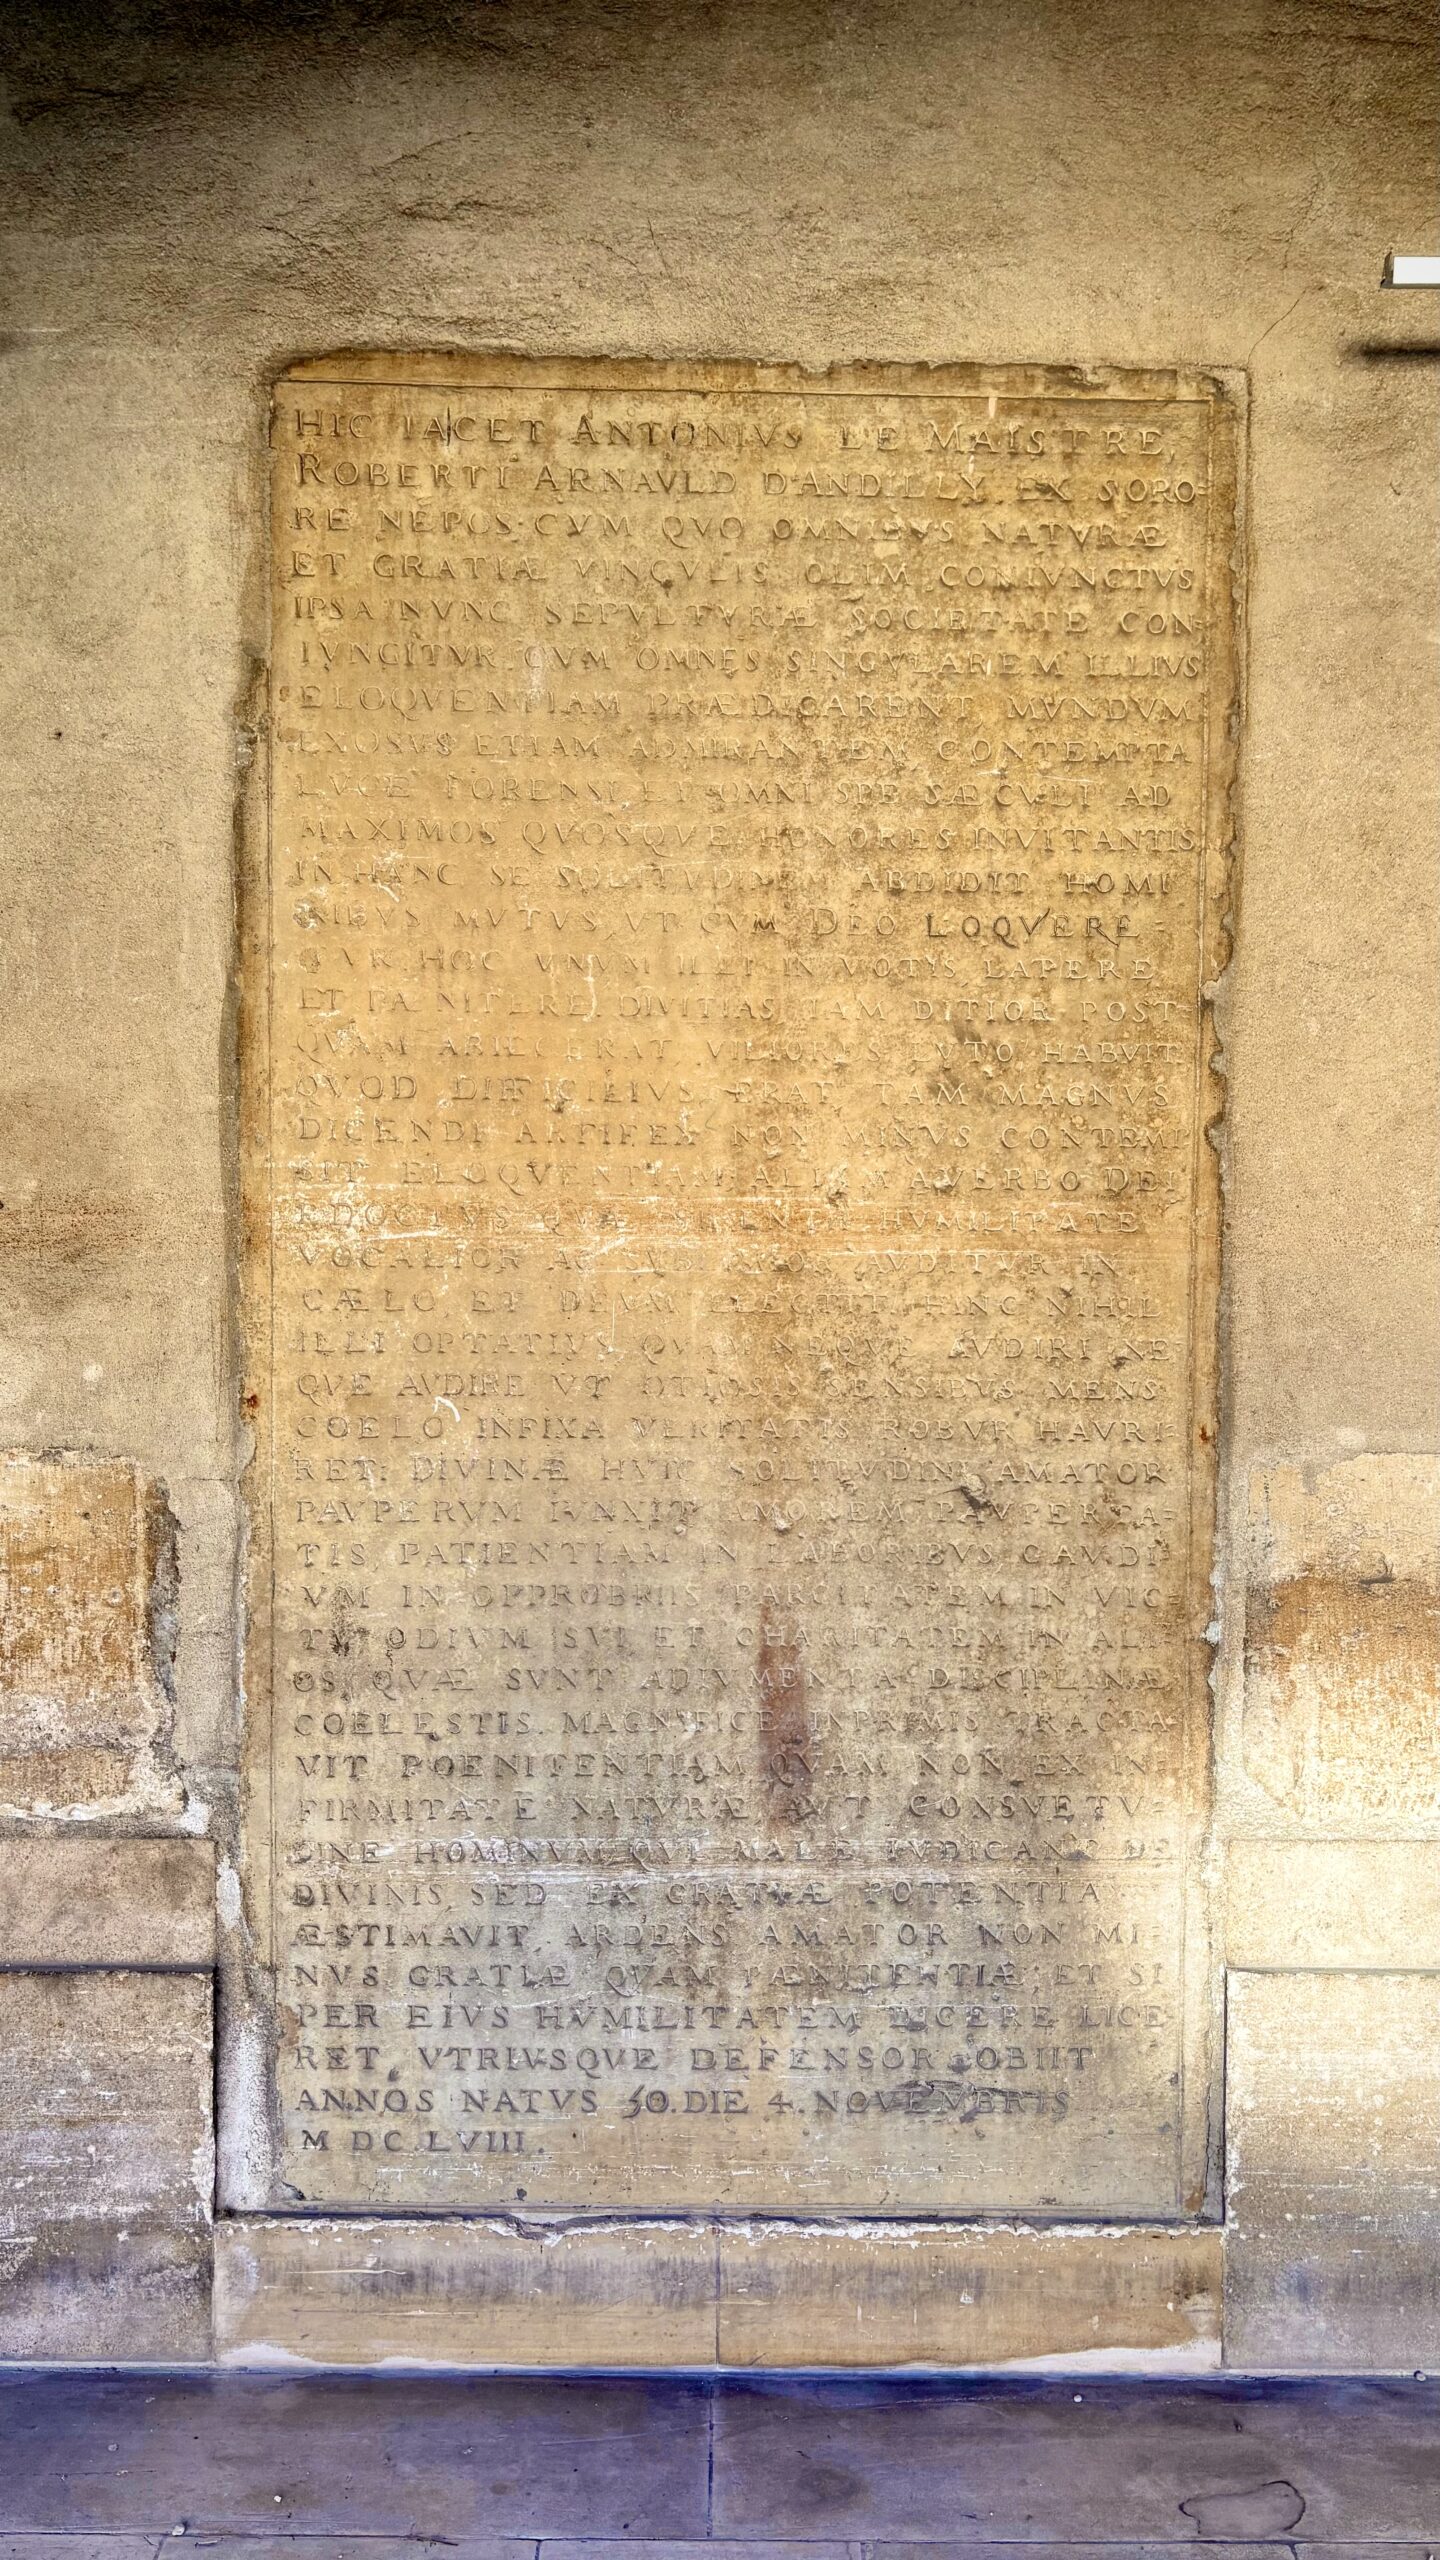 HIC IACET ANTONIVS LE MAISTRE,
ROBERTI ARNAVLD D'ANDILLY EX SORO=
RE NEPOS·CVM QVO OMNIBVS NATVRÆ
ET GRATIÆ VINCVLIS OLIM CONIVNCTVS
IPSA NVNC SEPVLTVRÆ SOCIETATE CON=
IVNGITVR. CVM OMNES SINGVLAREM ILLIVS
ELOQVENTIAM PRÆDICARENT MVNDVM
EXOSVS ETIAM ADMIRANTEM, CONTEMPTA
LVCE FORENSI ET OMNI SPE SÆCVLI AD
MAXIMOS QVOSQVE HONORES INVITANTIS
IN HANC SE SOLITVDINEM ABDIDIT HOMI
NIBVS MVTVS, VT CVM DEO LOQVERE=
TVR HOC VNVM ILLI IN VOTIS LATERE
ET PÆNITERE, DIVITIAS IAM DITIOR POST=
QVAM ABIECERAT, VILIORES LVTO HABVIT
QVOD DIFFICILIVS ERAT TAM MAGNVS
DICENDI ARTIFEX NON MINVS CONTEMP
SIT ELOQVENTIAM, A VERBO DEI
EDOCTVS QVÆ SILENTII HVMILITATE
VOCALIOR AC SVBLIMIOR AVDITVR IN
CÆLO, ET DEVM HINC NIHIL
ILLI OPTATIVS QVAM NEQVE AVDIRI NE
QVE AVDIRE VT OTIOSIS SENSIBVS MENS
COELO INFIXA VERITATIS ROBVR HAVRI=
RET: DIVINÆ HVIC SOLITVDINI AMATOR
PAVPERVM IVNXIT AMOREM PAVPERTA=
TIS, PATIENTIAM IN LABORIBVS, GAVDI=
VM IN OPPROBRIIS PARCITATEM IN VIC=
TV, ODIVM SVI ET CHARITATEM IN ALI=
OS, QVÆ SVNT ADIVMENTA DISCIPLINÆ
COELESTIS. MAGNIFICE INPRIMIS TRACTA=
VIT POENITENTIAM QVAM NON EX IN=
FIRMITATE NATVRÆ AVT CONSVETV=
DINE HOMINVM QVI MALE IVDICANT DE
DIVINIS, SED EX GRATIÆ POTENTIA
ÆSTIMAVIT, ARDENS AMATOR NON MI=
NVS GRATIÆ QVAM PÆNITENTIÆ; ET SI
PER EIVS HVMILITATEM DICERE LICE=
RET, VTRIVSQVE DEFENSOR. OBIIT
ANNOS NATVS 50. DIE 4. NOVEMBRIS
M DC LVIII.